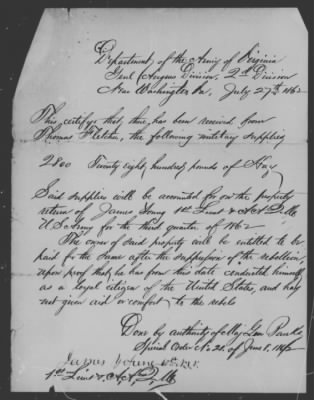 Department of the Army of Virginia
Genl Augurs Division, 2nd Division
Near Washington Va, July 27th 1862
This certifies that, there has been received from
Thomas Fletcher, the following military supplies
2800 Twenty eight, hundred pounds of Hay
Said supplies will be accounted for on the property
return of James Young 1st Lieut & Act
U.S. Army for the third quarter of 1862
The owner of said property will be entitled to be
paid for the same after the suppression of the rebellion,
upon proof that, he has from this date conducted himself
as a loyal citizen of the United States, and has
not given aid or comfort to the rebels
Done by authority of Maj Gen Banks
Special Order No 21. of June 5, 1862
James Young
1st Lieut & Act